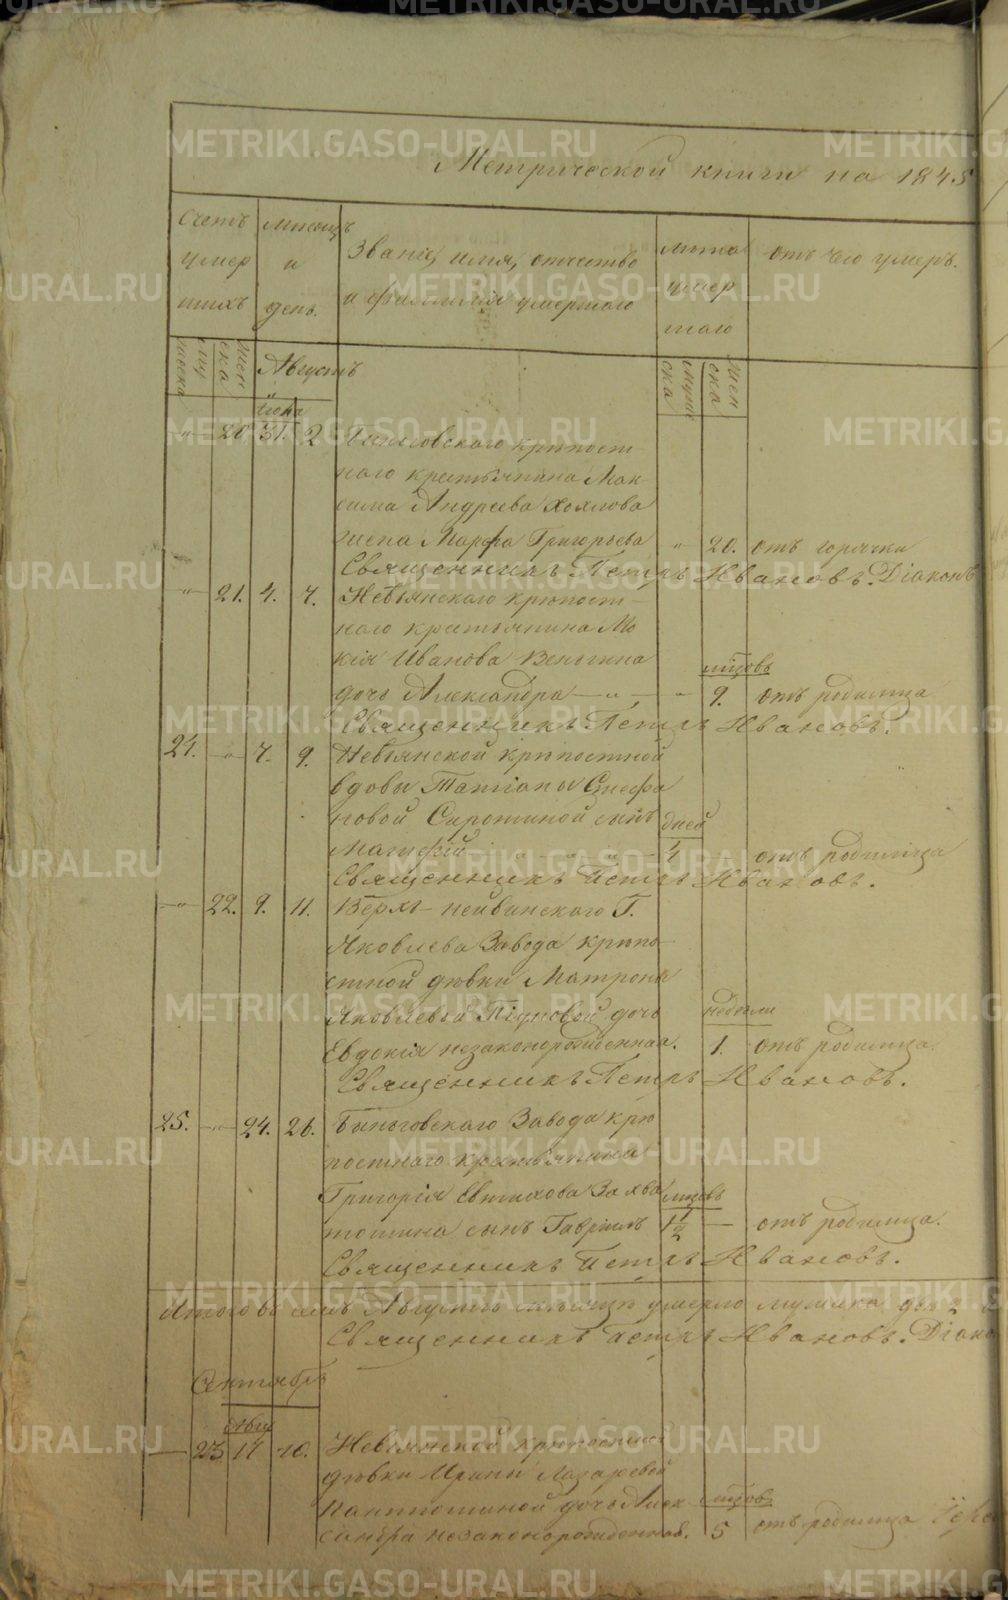 Метрической книги на 1845
Счетъ умершихъ
мѣсяцъ и день.
Званіе, имя, отчество и фамилія умершаго
лѣта умершаго
отъ чего умеръ.
мужеска
женска
Августъ
мужеска
женска
Іюля
—"— 20. 31. 2. Быньговскаго крѣпост-
наго крестьянина Мак-
сима Андреева Хохлова
жена Марфа Григорьева " 20. отъ горячки
Священникъ Петръ Ивановъ. Діаконъ
—"— 21. 4. 7. Невьянскаго крѣпост-
наго крестьянина Мо-
кія Иванова Веньгина мѣсяцовъ
дочь Александра —"— " 9. отъ родимца.
Священникъ Петръ Ивановъ.
24. —"— 7. 9. Невьянской крѣпостной
вдовы Татіаны Стефа
новой Сиротиной сынъ дней
Матфей — отъ родимца
Священникъ Петръ Ивановъ.
—"— 22. 9. 11. Верхъ-нейвинскаго Г.
Яковлева Завода крѣпо-
стной дѣвки Матроны
Яковлевой дочь недѣли
Евдокія незаконорожденная. 1. отъ родимца.
Священникъ Петръ Ивановъ.
25. —"— 24. 26. Быньговскаго Завода крѣ
постнаго крестьянина
Григорія Евтихова Захва мѣсяцовъ
тошина сынъ Гавріилъ 1 1/2 — отъ родимца.
Священникъ Петръ Ивановъ.
Итого въ семъ Августѣ мѣсяцѣ умерло мужска два
Священникъ Петръ Ивановъ. Діако
Сентябрь
— 23. 17 Невьянской крѣпостной
дѣвки Ирины Лазаревой
Пантюшиной дочь Алек мѣсяцов.
сандра незаконорожденная. 5 отъ родимца
METRIKI.GASO-URAL.RU